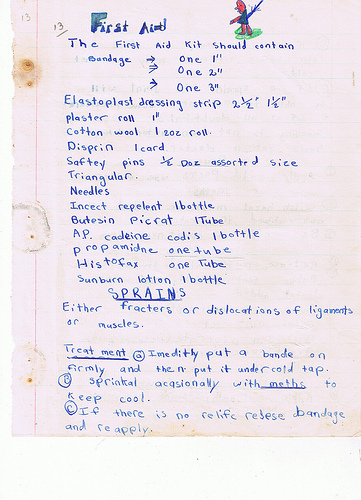 13
13
First Aid
The First Aid Kit should contain
Bandage → One 1"
→ One 2"
→ One 3"
Elastoplast dressing strip 2½" 1½"
plaster roll 1"
Cotton wool 1 2oz roll.
Disprin 1 card
Saftey pins ½ Doz assorted size
Triangular.
Needles
Incect repelent 1 bottle
Butesin Picrat 1 Tube
A.P. cadeine codis 1 bottle
propamidne one tube
Histofax one Tube
Sunburn lotion 1 bottle
SPRAINS
Either fracters or dislocations of ligaments
or muscles.
Treatment (a) Imeditly put a bande on
firmly and then put it under cold tap.
(B) Sprinkal acasionally with meths to
keep cool.
(C) If there is no relife relese bandage
and reapply.